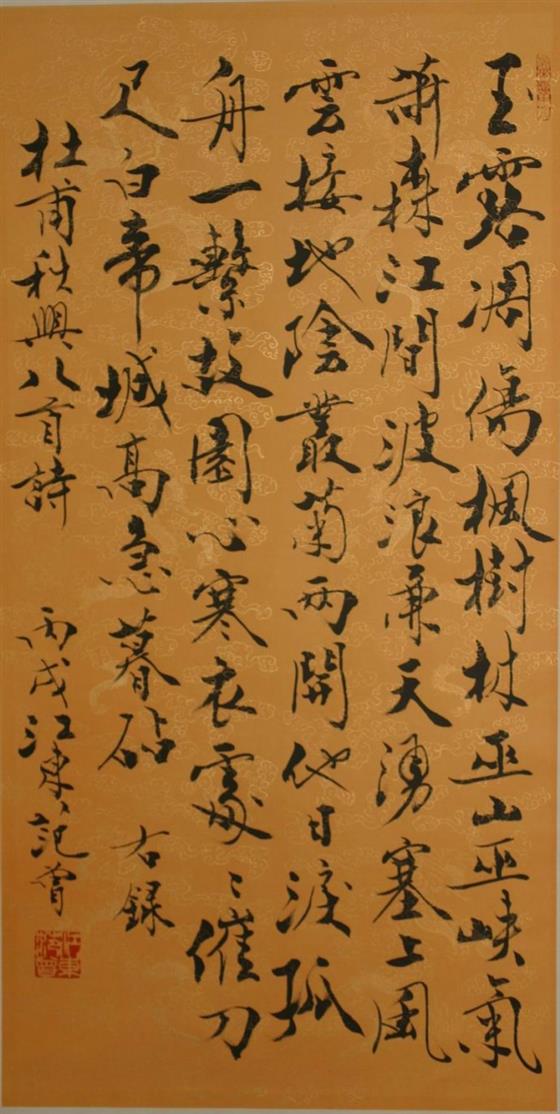 玉露凋傷楓樹林巫山巫峽氣
蕭森江間波浪兼天湧塞上風
雲接地陰叢菊兩開他日淚孤
舟一繫故園心寒衣處〻催刀
尺白帝城高急暮砧 右錄
杜甫秋興八首詩 丙戌江東范曾